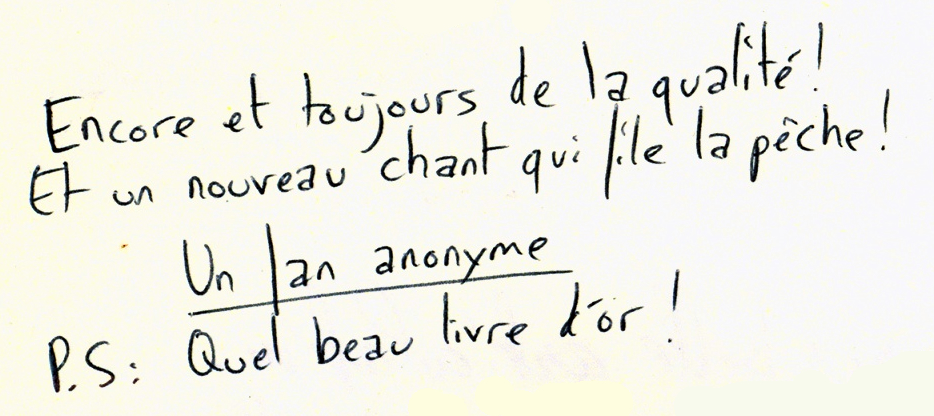 Encore et toujours de la qualité !
Et un nouveau chant qui file la pêche !
Un fan anonyme
P.S : Quel beau livre d'or !